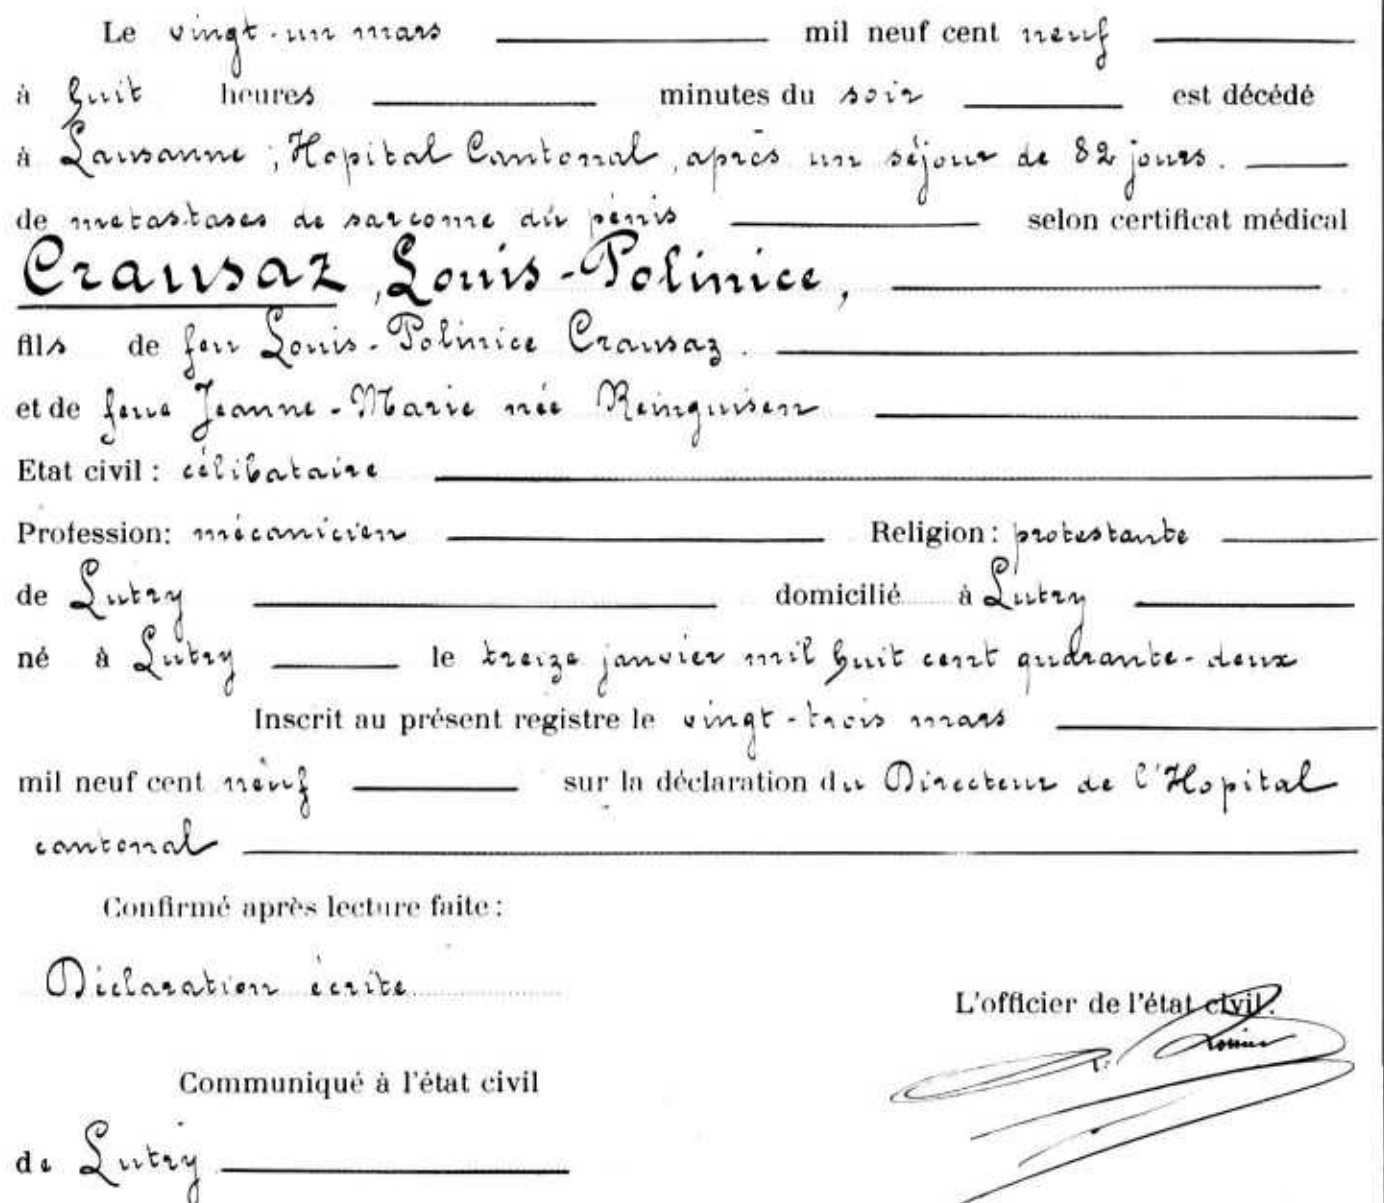 Le vingt-un mars mil neuf cent neuf
à huit heures minutes du soir est décédé
à Lausanne, Hopital Cantonal, après un séjour de 82 jours.
de metastases de sarcome du pénis selon certificat médical
Crausaz, Louis-Polinice,
fils de feu Louis-Polinice Crausaz.
et de feue Jeanne-Marie née Reinguisen
Etat civil : célibataire
Profession: mécanicien Religion: protestante
de Lutry domicilié à Lutry
né à Lutry le treize janvier mil huit cent quarante-deux
Inscrit au présent registre le vingt-trois mars
mil neuf cent neuf sur la déclaration du Directeur de l'Hopital
cantonal
Confirmé après lecture faite :
Déclaration écrite
L'officier de l'état civil:
Communiqué à l'état civil
de Lutry